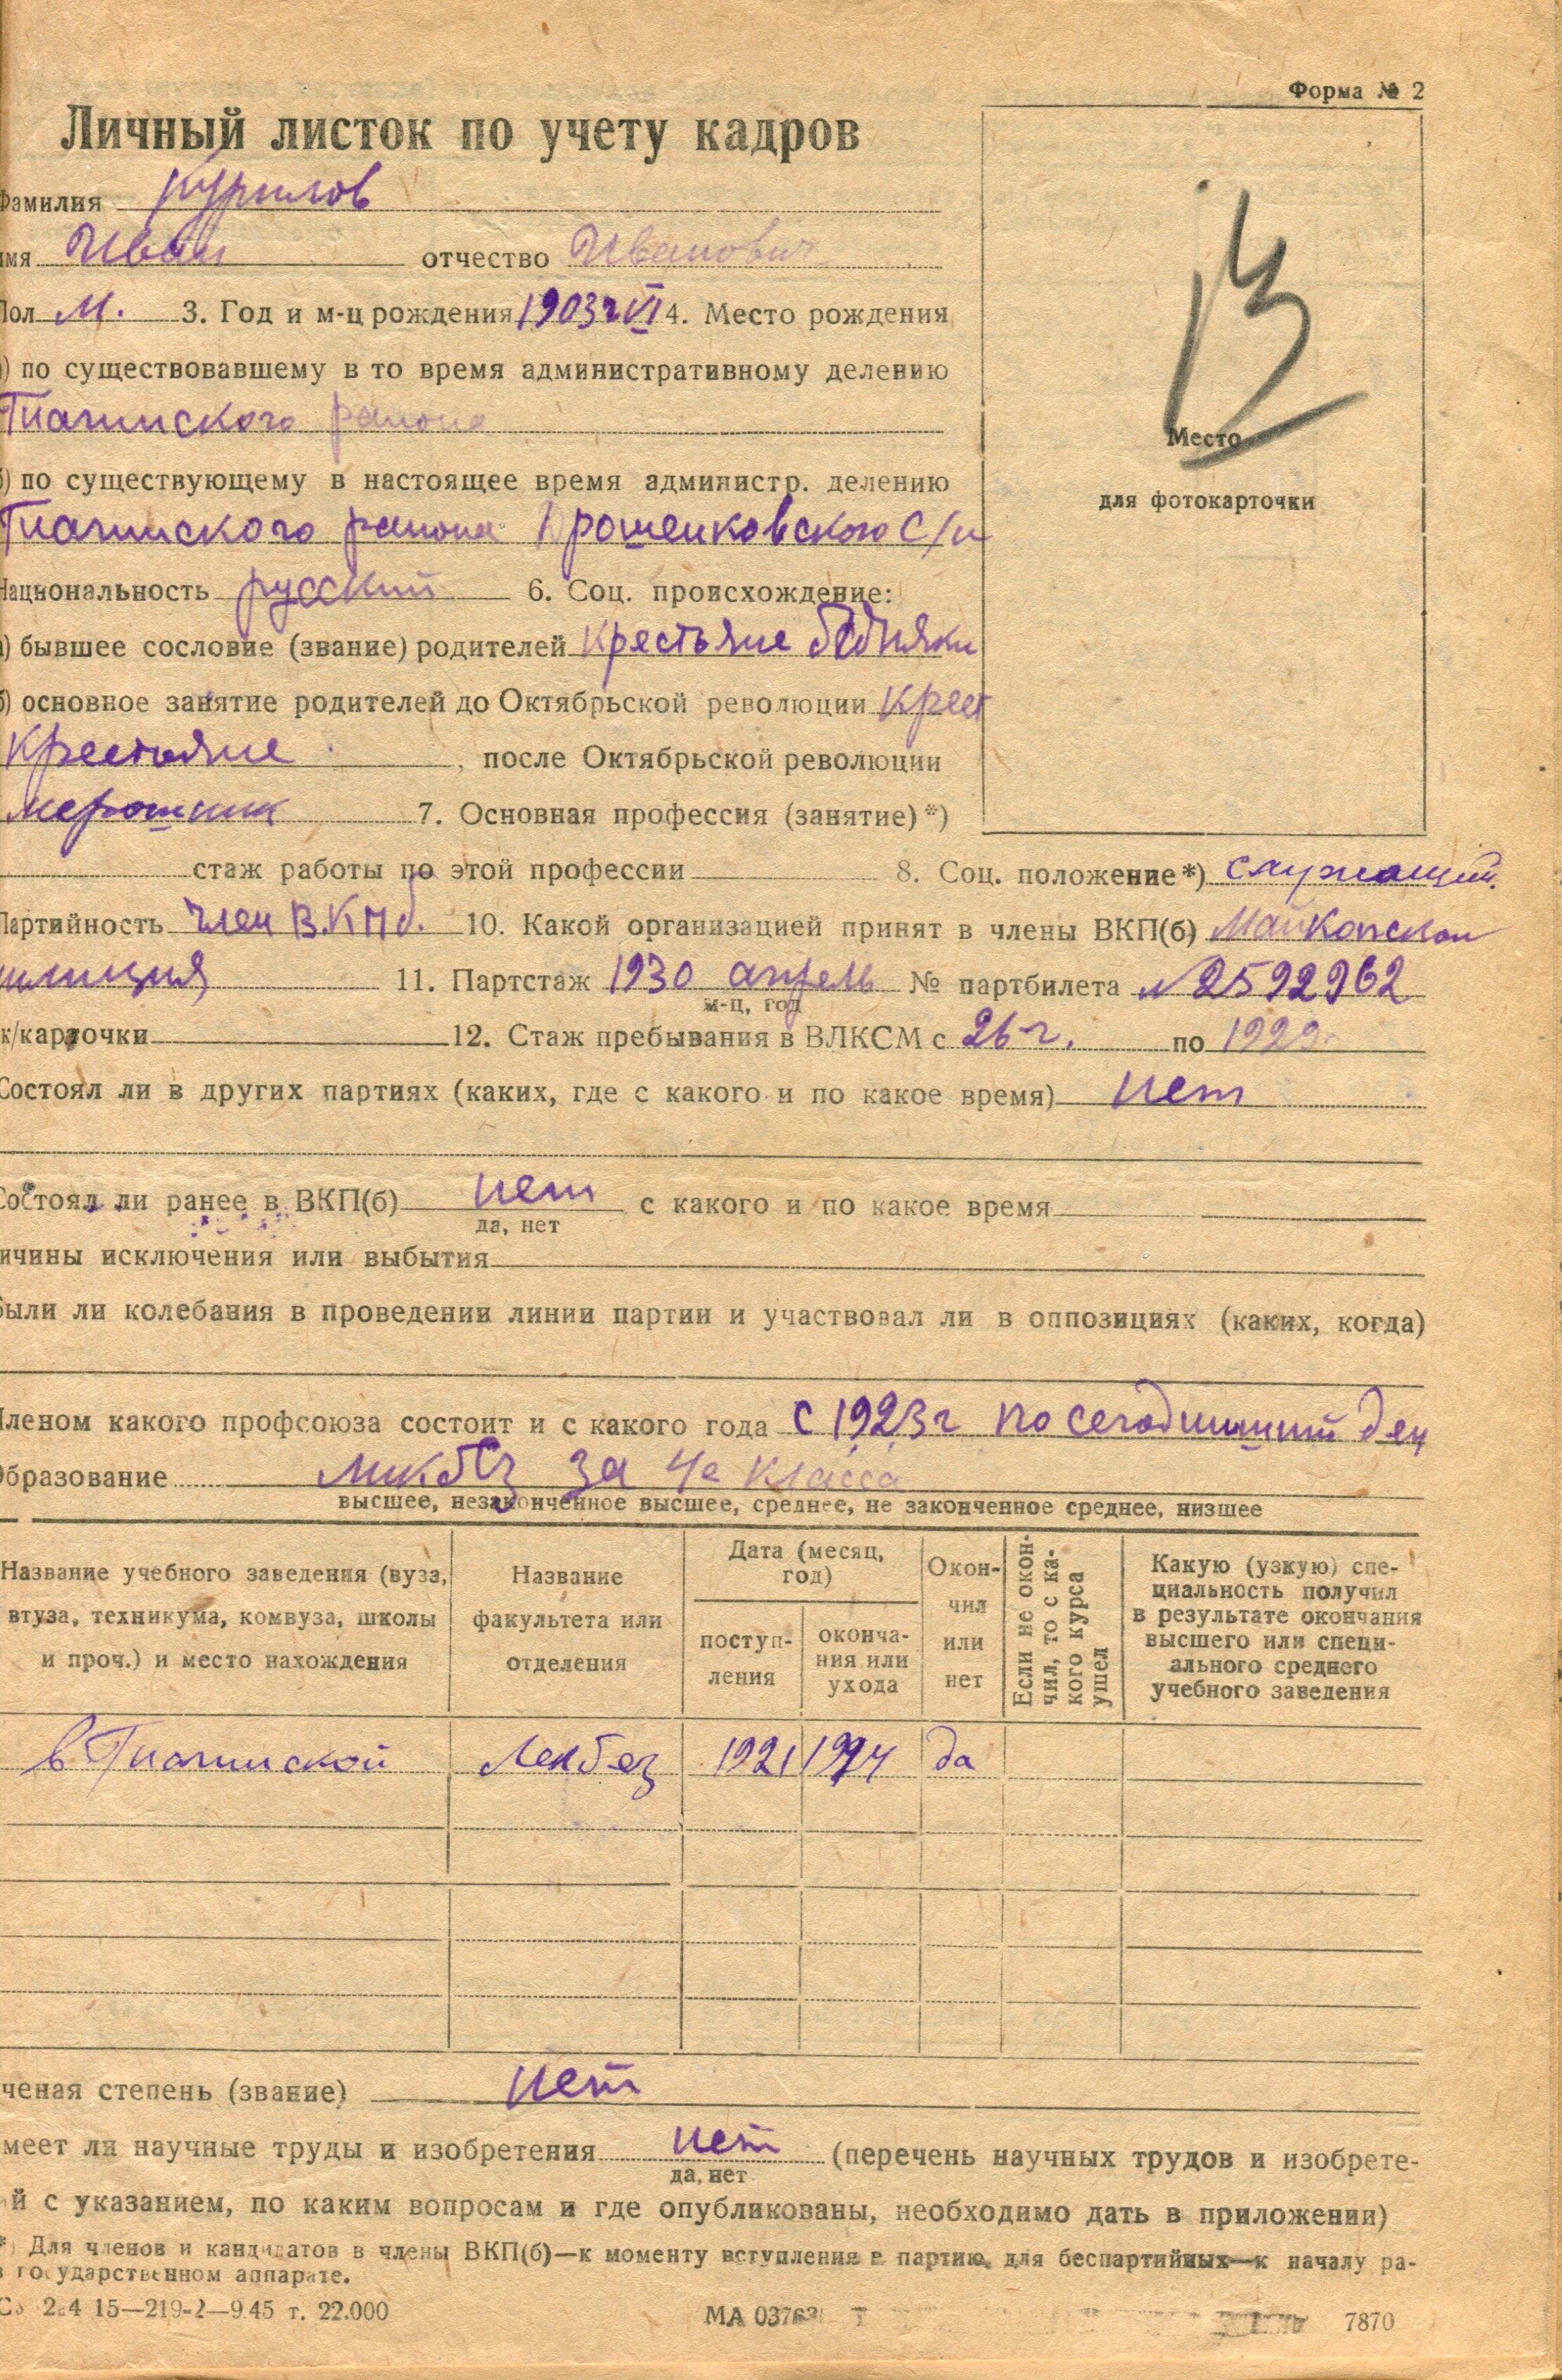 Форма № 2
Личный листок по учету кадров
Фамилия Курилов
имя Иван отчество Иванович
Пол М. 3. Год и м-ц рождения 1903 г VI 4. Место рождения
) по существовавшему в то время административному делению
Гиагинского района
б) по существующему в настоящее время администр. делению
Гиагинского района С/с
Национальность русский 6. Соц. происхождение:
) бывшее сословие (звание) родителей крестьяне бедняки
б) основное занятие родителей до Октябрьской революции крест
крестьяне, после Октябрьской революции
7. Основная профессия (занятие)*)
стаж работы по этой профессии 8. Соц. положение*) служащий.
Партийность член В.КПб. 10. Какой организацией принят в члены ВКП(б) Майкопской
милиция 11. Партстаж 1930 апрель № партбилета №2592962
м-ц, год
к/карточки 12. Стаж пребывания в ВЛКСМ с 26 г. по 1929
Состоял ли в других партиях (каких, где с какого и по какое время) нет
Состоял ли ранее в ВКП(б) нет с какого и по какое время
да, нет
ичины исключения или выбытия
были ли колебания в проведении линии партии и участвовал ли в оппозициях (каких, когда)
Членом какого профсоюза состоит и с какого года с 1923 г по сегодняшний ден
Образование ликбез за 4е класса
высшее, незаконченное высшее, среднее, не законченное среднее, низшее
Название учебного заведения (вуза, втуза, техникума, комвуза, школы и проч.) и место нахождения
Название факультета или отделения
Дата (месяц, год)
поступления
окончания или ухода
Окончил или нет
Если не окончил, то с какого курса ушел
Какую (узкую) специальность получил в результате окончания высшего или специального среднего учебного заведения
в Гиагинской Лекбез 1921 1924 да
ченая степень (звание) нет
меет ли научные труды и изобретения нет (перечень научных трудов и изобрете-
да, нет
й с указанием, по каким вопросам и где опубликованы, необходимо дать в приложении)
*) Для членов и кандидатов в члены ВКП(б)—к моменту вступления в партию, для беспартийных—к началу ра-
в государственном аппарате.
15—219-2—9.45 т. 22.000 МА 03763 7870
13
Место
для фотокарточки